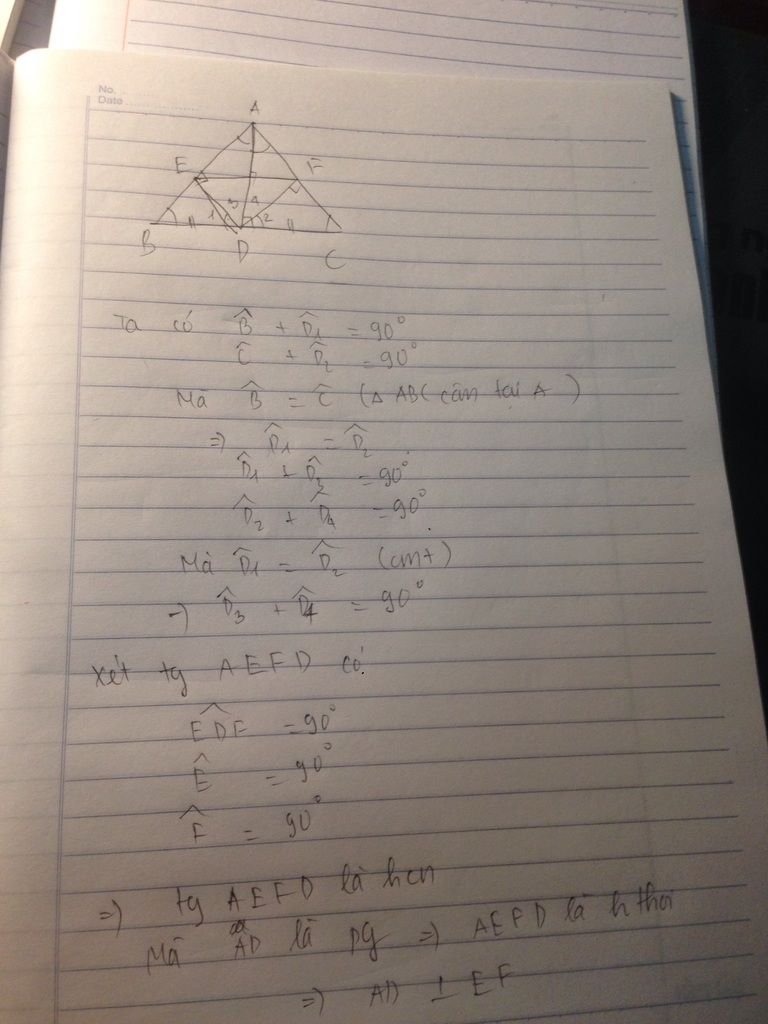 No.
Date
A
E
F
3 4
1 2
B
D
C
Ta có B̂ + D̂1 = 90°
Ĉ + D̂2 = 90°
Mà B̂ = Ĉ (Δ ABC cân tại A)
=> D̂1 = D̂2
D̂1 + D̂3 = 90°
D̂2 + D̂4 = 90°
Mà D̂1 = D̂2 (cmt)
=> D̂3 + D̂4 = 90°
Xét tg AEFD có
EDF = 90°
Ê = 90°
F̂ = 90°
=> tg AEFD là hcn
Mà AD là pg => AEFD là h thoi
=> AD ⊥ EF